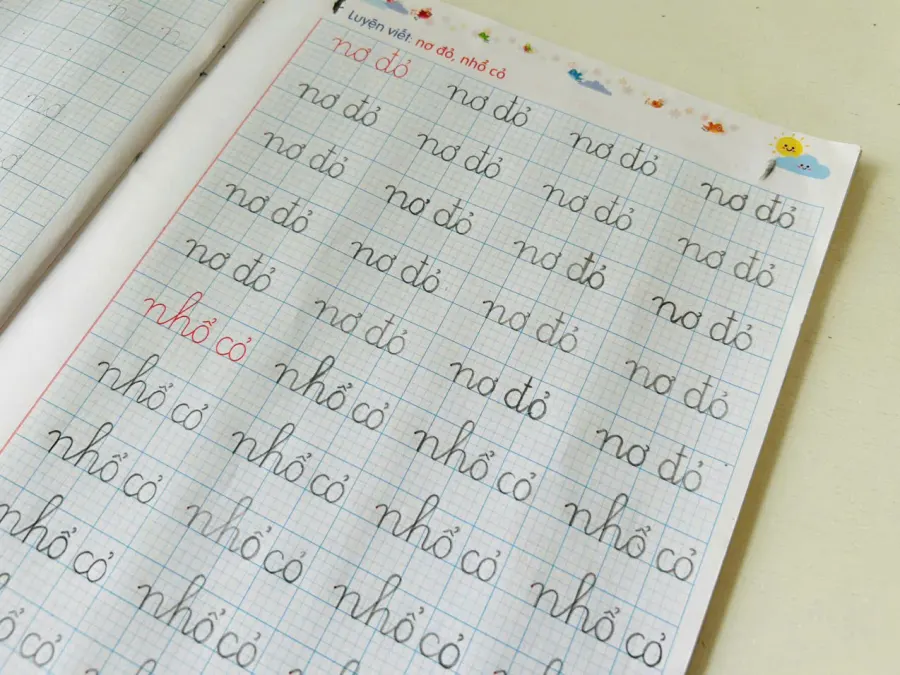 Luyện viết: nơ đỏ, nhổ cỏ
nơ đỏ nơ đỏ nơ đỏ nơ đỏ
nơ đỏ nơ đỏ nơ đỏ nơ đỏ
nơ đỏ nơ đỏ nơ đỏ nơ đỏ
nơ đỏ nơ đỏ nơ đỏ nơ đỏ
nơ đỏ nơ đỏ nơ đỏ nơ đỏ
nhổ cỏ nhổ cỏ nhổ cỏ nhổ cỏ
nhổ cỏ nhổ cỏ nhổ cỏ nhổ cỏ
nhổ cỏ nhổ cỏ nhổ cỏ
nhổ cỏ nhổ cỏ
cỏ